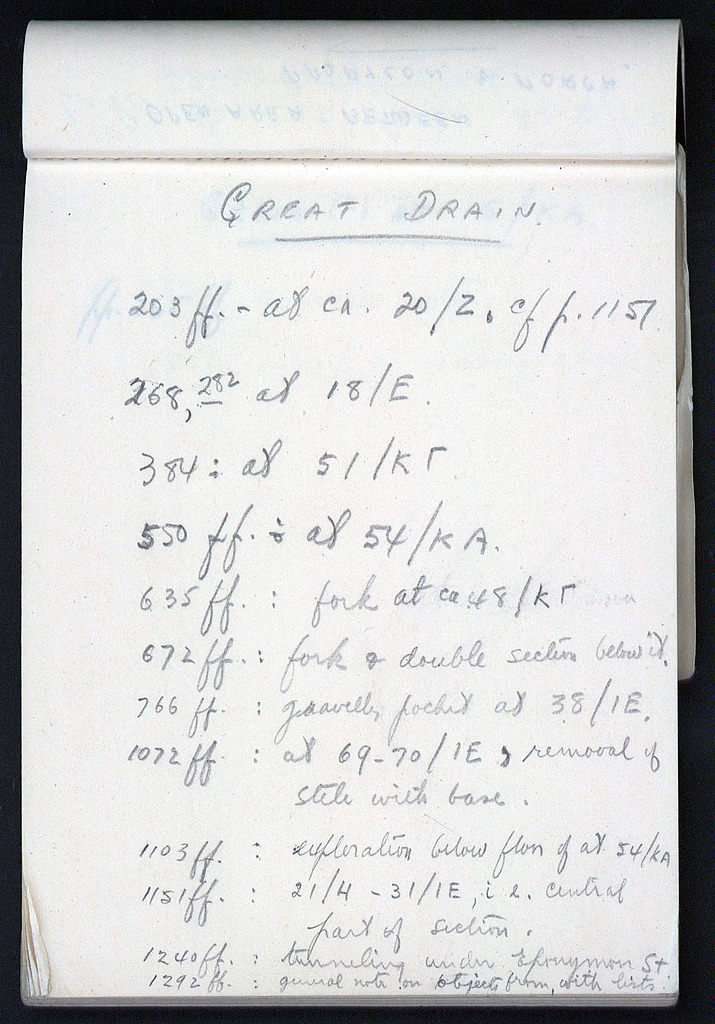 GREAT DRAIN.
203 ff. - at ca. 20/Z, cf p. 1151
268, 282 at 18/E.
384 : at 51/ΚΓ
550 ff. : at 54/KA.
635 ff. : fork at ca 48/ΚΓ
672 ff. : fork & double section below it.
766 ff. : gravelly pocket at 38/IE.
1072 ff. : at 69-70/IE, removal of
stele with base.
1103 ff. : exploration below floor of at 54/KA
1151 ff. : 21/H - 31/IE, i.e. central
part of section.
1240 ff. : tunneling under Eponymon St
1292 ff. : general note on objects from, with lists